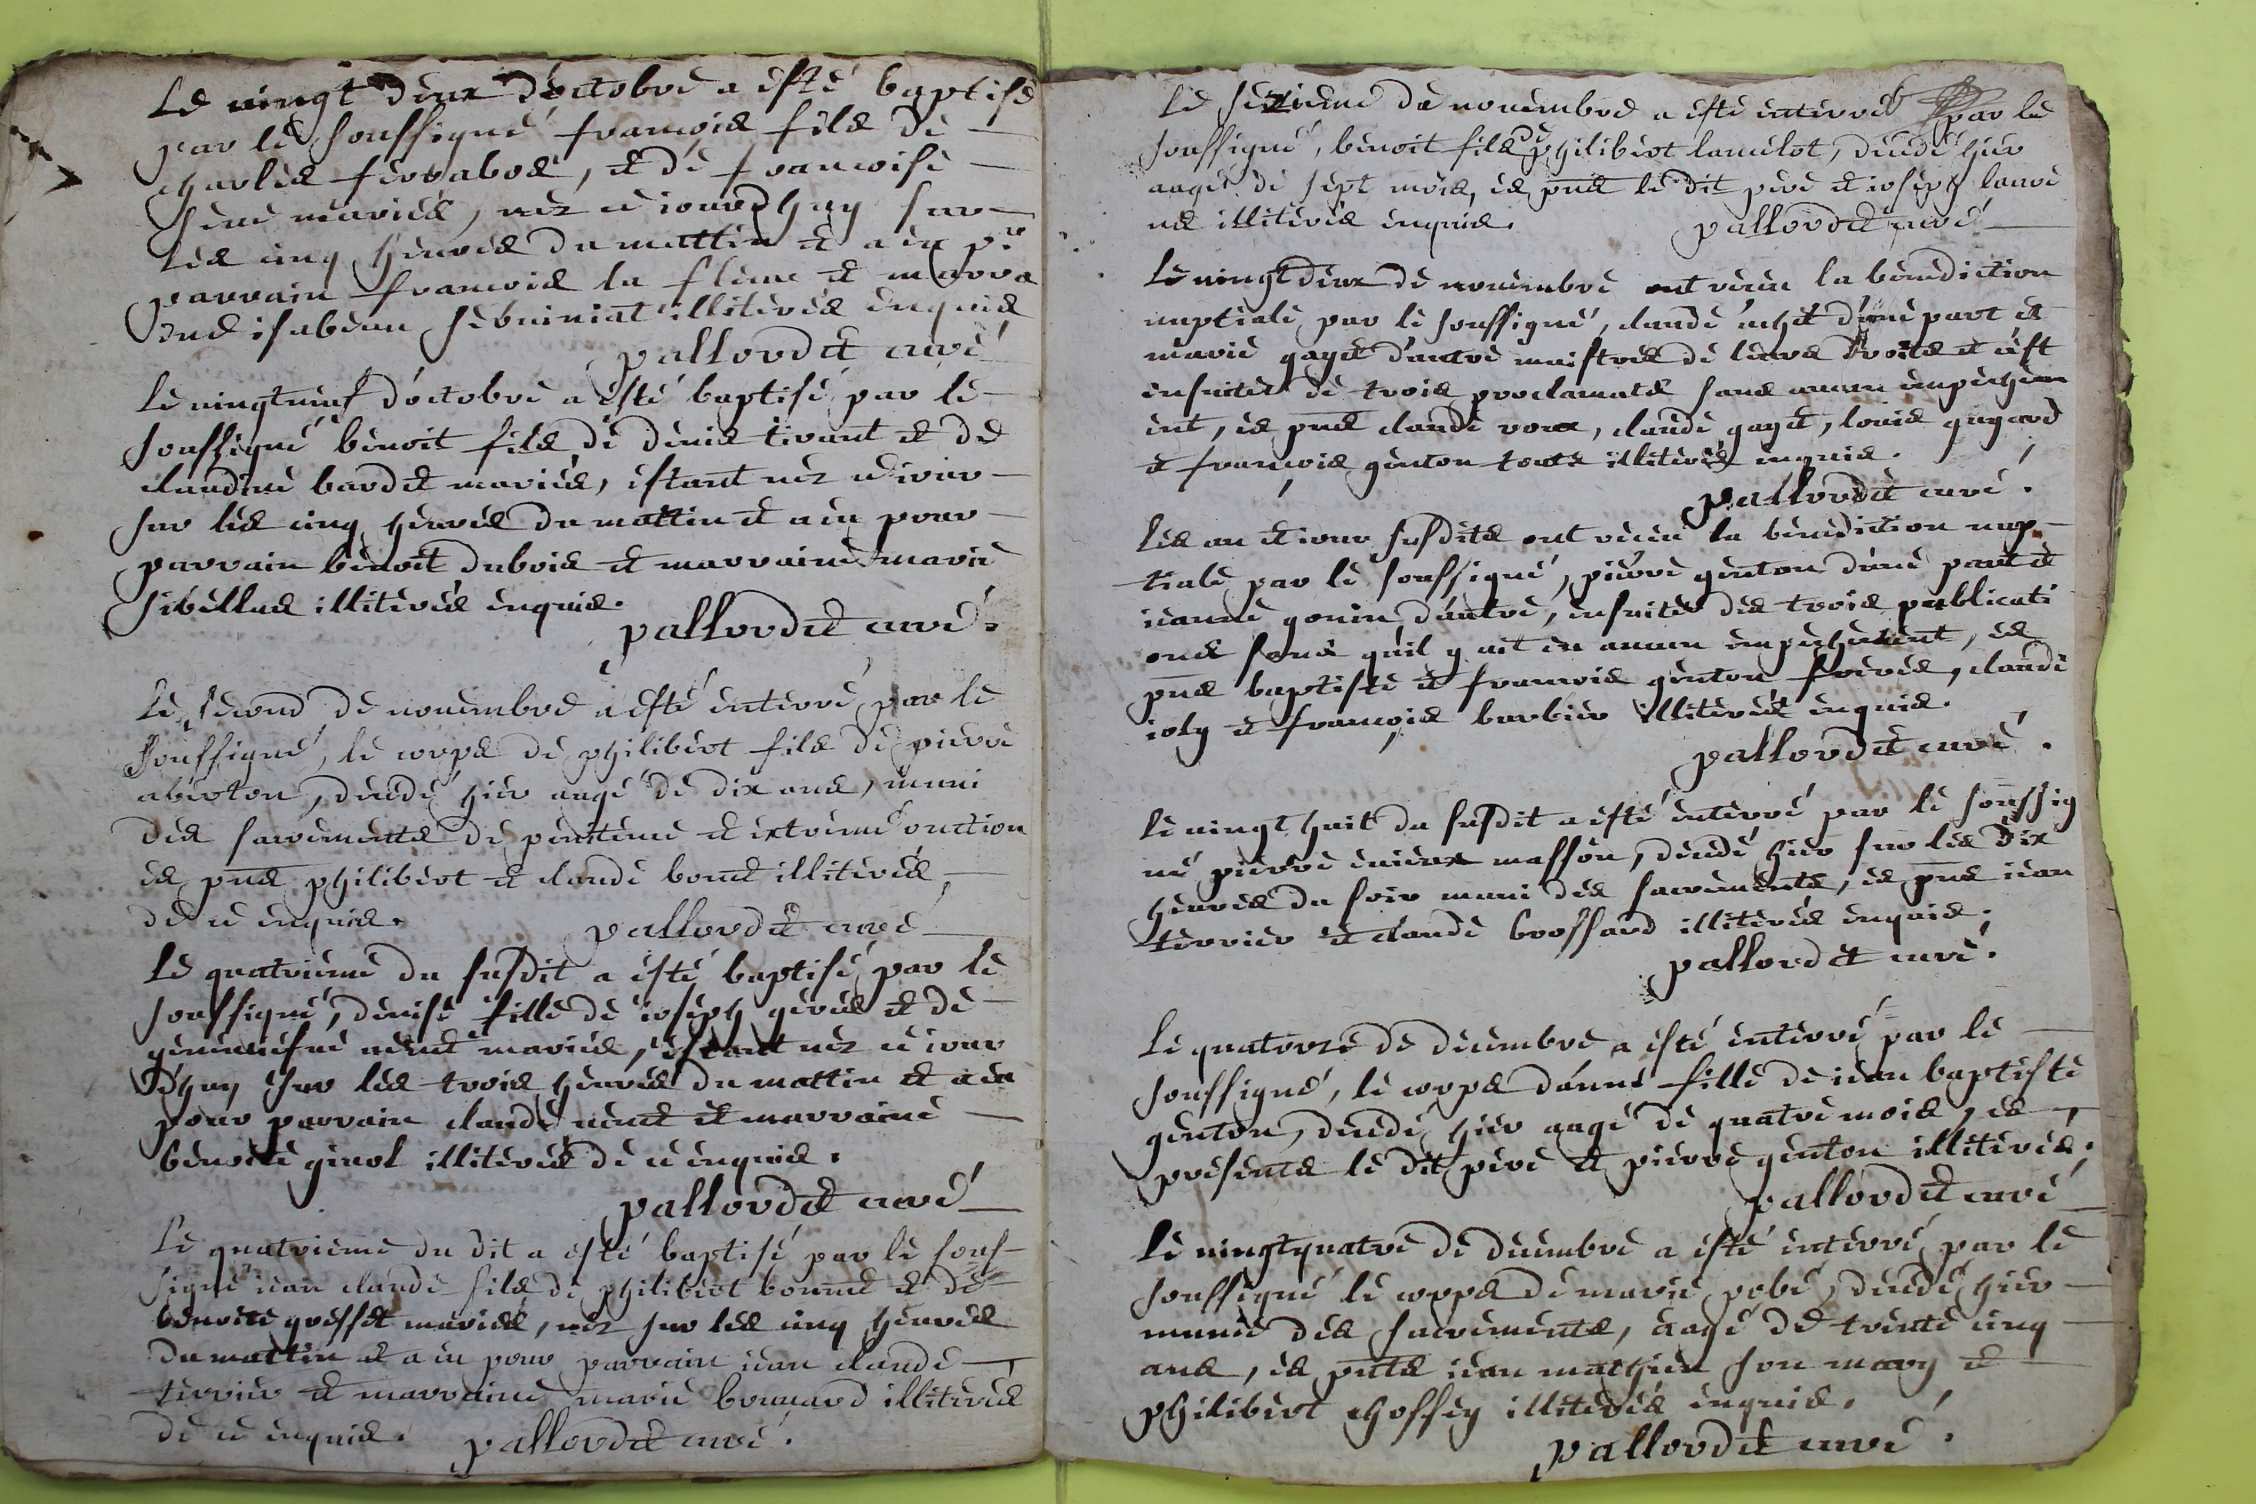 Le vingt deux d'octobre a esté baptisé
par le soussigné françois fils de
charles ferrabos, et de francoise
mariés, nez ce iourdhuy sur
les cinq heures du mattin et a eu pr
parrain francois la fleur et marra
ine isabeau illiterés enquis
pallordet curé
Le vingtneuf d'octobre a esté baptisé par le
soussigné benoit fils de denis tirant et de
claudine bardet mariés, estant nez ce iour
sur les cinq heures du mattin et a eu pour
parrain benoit dubois et marraine marie
sibellas illiterés enquis.
pallordet curé.
Le second de nouembre a esté enterré par le
soussigné, le corps de philibert fils de pierre
aberton, decedé hier aagé de dix ans, muni
des sacrements de penitence et extreme onction
es pns philibert et claude bonet illiterés,
de ce enquis.
pallordet curé
Le quatrieme du susdit a esté baptisé par le
soussigné, denise fille de ioseph gerés et de
geneuiefue mariés, estant nez ce iour
d'huy sur les trois heures du mattin et a eu
pour parrain claude et marraine
benoite girol illiterés de ce enquis.
pallordet curé
Le quatrieme du dit a esté baptisé par le sous-
signé iean claude fils de philibert bonnet et de
benoite gresset mariés, nez sur les cinq heures
du mattin et a eu pour parrain iean claude
terrier et marraine marie bonnard illiterés
de ce enquis. pallordet curé.
Le sezieme de nouembre a esté enterré par le
soussigné, benoit fils de philibert lamelot, decedé hier
aagé de sept mois, es pns le dit pere et ioseph laure
ns illiterés enquis. pallordet curé
Le vingtdeux de nouembre ont receu la benediction
nuptiale par le soussigné, claude d'une part et
marie gaget d'autre maistres de leurs droits et c'est
ensuittes de trois proclamats sans aucun empechem
ent, es pns claude roux, claude gaget, louis guyard
et françois genton touts illiterés enquis.
pallordet curé.
Les an et iour susdits ont receu la benediction nup-
tiale par le soussigné, pierre genton d'une part et
ieanne gonin d'autre, ensuittes des trois publicati
ons sans qu'il y ait eu aucun empechement, es
pns baptiste et francois genton freres, claude
ioly et françois barbier illiterés enquis.
pallordet curé.
Le vingt huit du susdit a esté enterré par le soussig
né pierre masson, decedé hier sur les dix
heures du soir muni des sacrements, es pns iean
terrier et claude brossard illiterés enquis.
pallordet curé.
Le quatorze de decembre a esté enterré par le
soussigné, le corps d'anne fille de iean baptiste
genton, decedé hier aagé de quatre mois, es
presents le dit pere et pierre genton illiterés.
pallordet curé
Le vingtquatre de decembre a esté enterré par le
soussigné le corps de marie pobé, decedé hier
munie des sacrements, eagé de trente cinq
ans, es pnts iean mathieu son mary et
philibert choffey illiterés enquis.
pallordet curé.